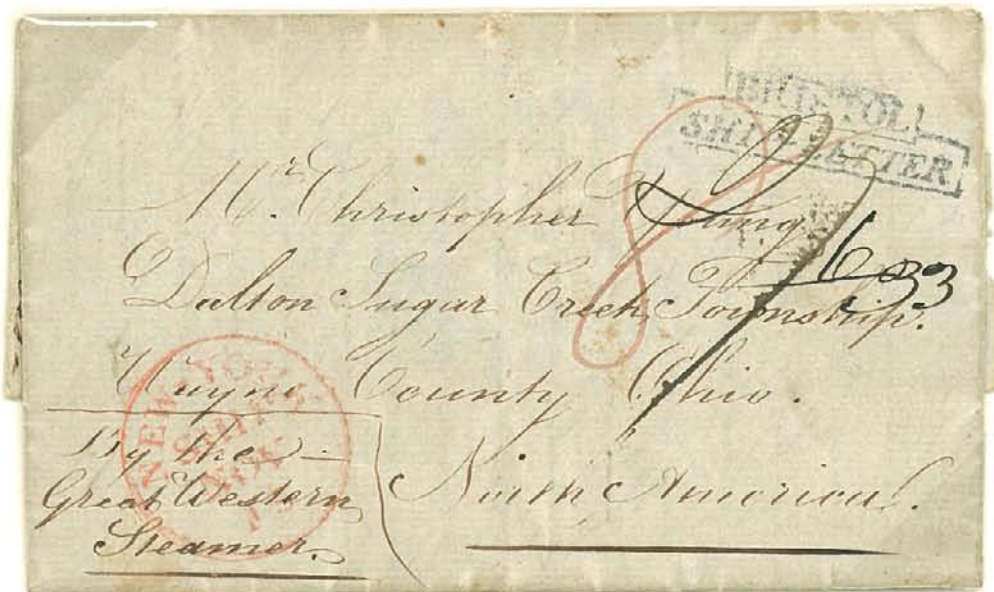 BRISTOL
SHIP LETTER
8
Mr. Christopher Young
Dalton Sugar Creek Township.
33
Wayne County Ohio.
North America.
NEW YORK
SHIP
NOV
By the
Great Western
Steamer